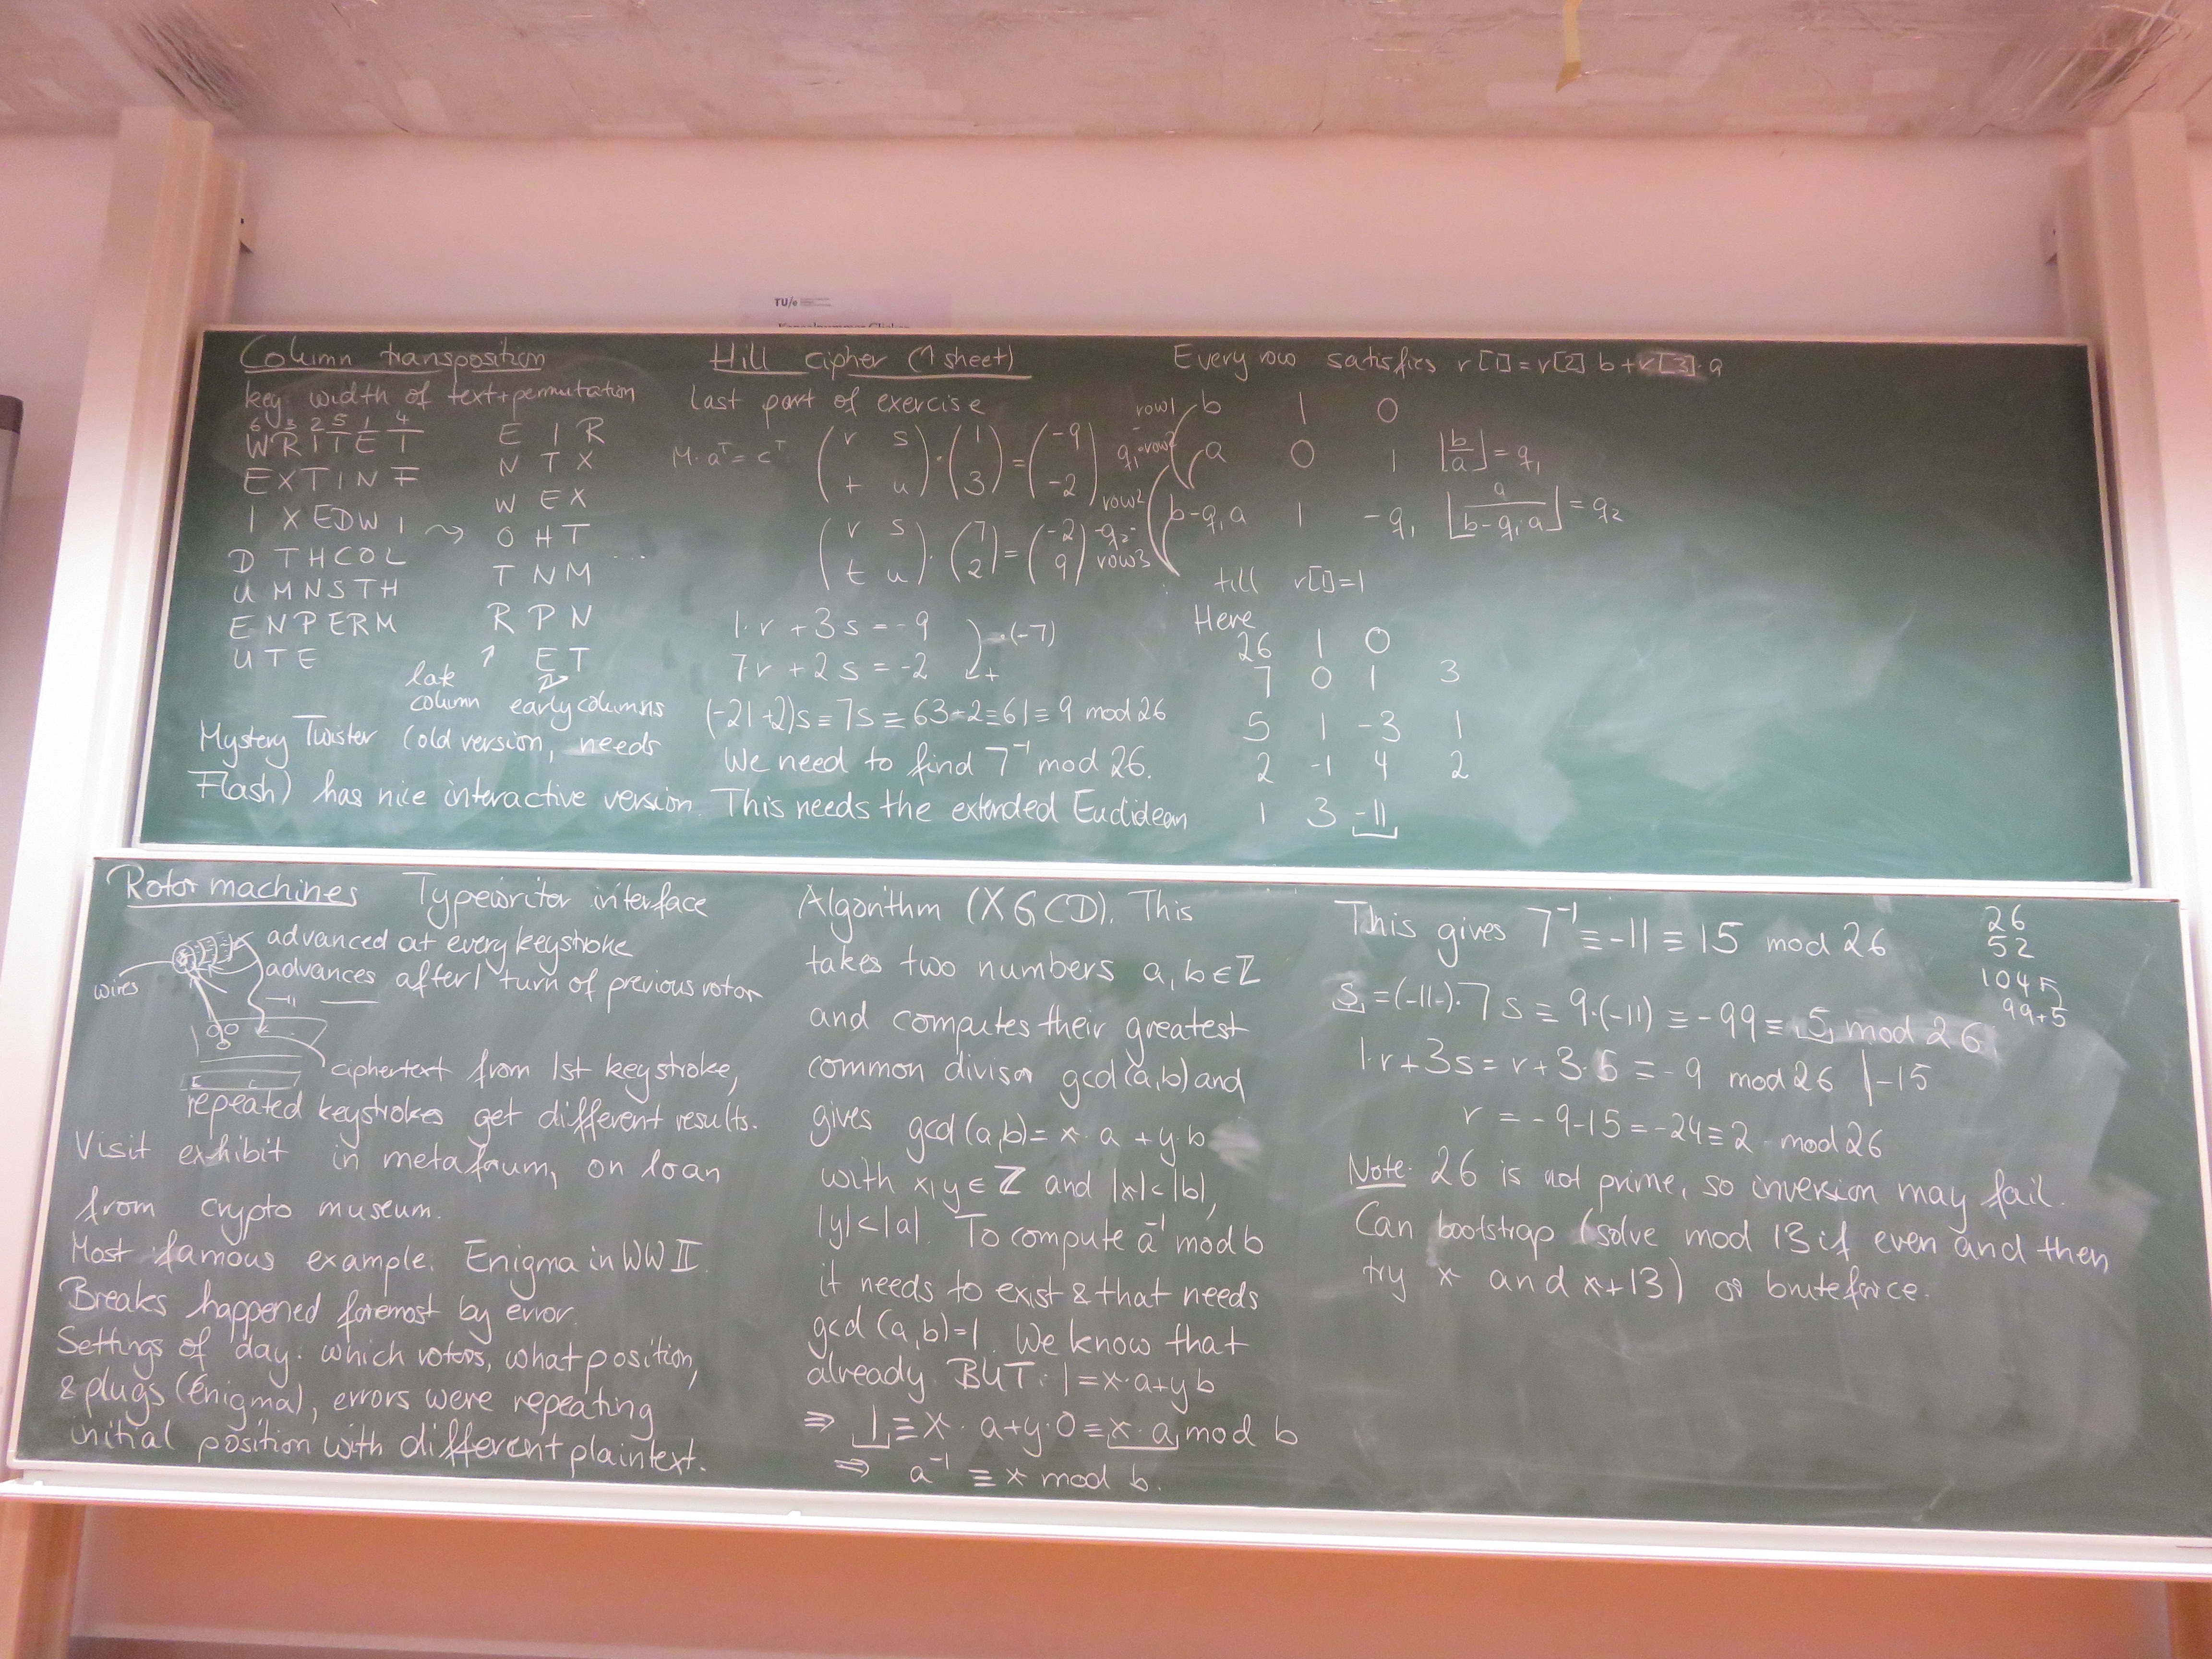 TU/e
Column transposition
key: width of text + permutation
6 3 2 5 1 4
W R I T E T
E X T I N F
I X E D W I
D T H C O L
U M N S T H
E N P E R M
U T E
E I R
N T X
W E X
O H T
T N M ....
R P N
E T
late
column early columns
Mystery Twister (old version, needs
Flash) has nice interactive version.
Hill cipher (1 sheet)
last part of exercise
M·aᵀ = cᵀ (r s; t u)·(1; 3) = (-9; -2)
(r s; t u)·(7; 2) = (-2; 9)
1·r + 3s = -9 ·(-7)
7·r + 2s = -2 +
(-21+2)s ≡ 7s ≡ 63-2 ≡ 61 ≡ 9 mod 26
We need to find 7⁻¹ mod 26.
This needs the extended Euclidean
Every row satisfies r[1] = r[2] b + r[3]·a
row1 b 1 0
- q₁·row2 a 0 1 ⌊b/a⌋ = q₁
row2 b-q₁a 1 -q₁ ⌊a/(b-q₁·a)⌋ = q₂
-q₂·row3
till r[1]=1
Here
26 1 0
7 0 1 3
5 1 -3 1
2 -1 4 2
1 3 -11
Rotor machines Typewriter interface
advanced at every keystroke
advances after 1 turn of previous rotor
wires
-"-
ciphertext from 1st keystroke,
repeated keystrokes get different results.
Visit exhibit in metaforum, on loan
from crypto museum.
Most famous example: Enigma in WW II.
Breaks happened foremost by error.
Settings of day: which rotors, what position,
& plugs (Enigma), errors were repeating
initial position with different plaintext.
Algorithm (XGCD). This
takes two numbers a, b ∈ Z
and computes their greatest
common divisor gcd(a,b) and
gives gcd(a,b) = x·a + y·b
with x,y ∈ Z and |x|<|b|,
|y|<|a|. To compute a⁻¹ mod b
it needs to exist & that needs
gcd(a,b)=1. We know that
already BUT: 1 = x·a+y b
⇒ 1 ≡ x·a+y·0 ≡ x·a mod b
⇒ a⁻¹ ≡ x mod b.
This gives 7⁻¹ ≡ -11 ≡ 15 mod 26
26
52
104 5
99+5
s = (-11)·7 s ≡ 9·(-11) ≡ -99 ≡ 5 mod 26
1·r+3s = r+3·5 ≡ -9 mod 26 | -15
r = -9-15 = -24 ≡ 2 mod 26
Note: 26 is not prime, so inversion may fail.
Can bootstrap (solve mod 13 if even and then
try x and x+13) or bruteforce.